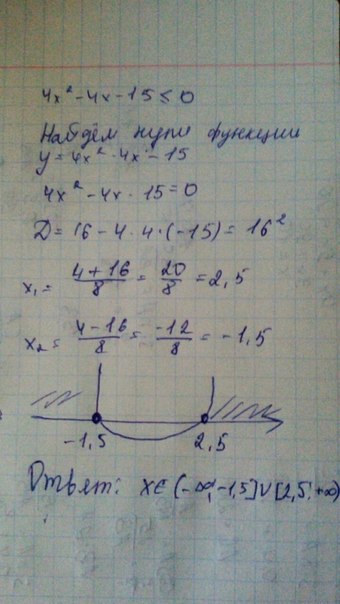 4x² - 4x - 15 ≤ 0
Найдём нули функции
y = 4x² - 4x - 15
4x² - 4x - 15 = 0
D = 16 - 4 · 4 · (-15) = 16²
x₁ = (4+16)/8 = 20/8 = 2,5
x₂ = (4-16)/8 = -12/8 = -1,5
-1,5 2,5
Ответ: x∈(-∞; -1,5]∪[2,5; +∞)